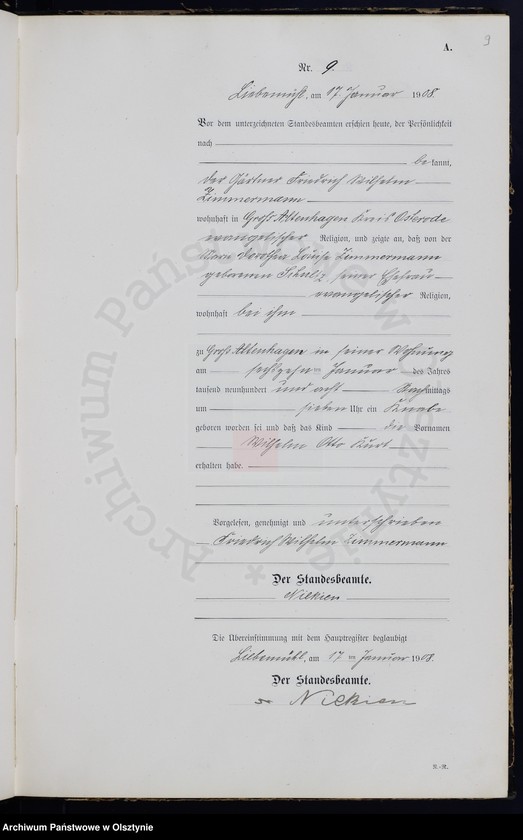 9
A.
Nr. 9.
Liebemühl, am 17. Januar 1908.
Vor dem unterzeichneten Standesbeamten erschien heute, der Persönlichkeit
nach
be kannt,
der Gärtner Friedrich Wilhelm
Zimmermann
wohnhaft in Groß Altenhagen Kreis Osterode
evangelischer Religion, und zeigte an, daß von der
Dorothea Louise Zimmermann
geborenen Schulz, seiner Ehefrau
evangelischer Religion,
wohnhaft bei ihm
zu Groß Altenhagen in seiner Wohnung
am sechszehn ten Januar des Jahres
tausend neunhundert und acht Nachmittags
um sieben Uhr ein Knabe
geboren worden sei und daß das Kind die Vornamen
Wilhelm Otto Kurt
erhalten habe.
Vorgelesen, genehmigt und unterschrieben
Friedrich Wilhelm Zimmermann
Der Standesbeamte.
Nickien
Die Übereinstimmung mit dem Hauptregister beglaubigt
Liebemühl, am 17 ten Januar 1908.
Der Standesbeamte.
Nickien
Archiwum Państwowe w Olsztynie *
Archiwum Państwowe w Olsztynie